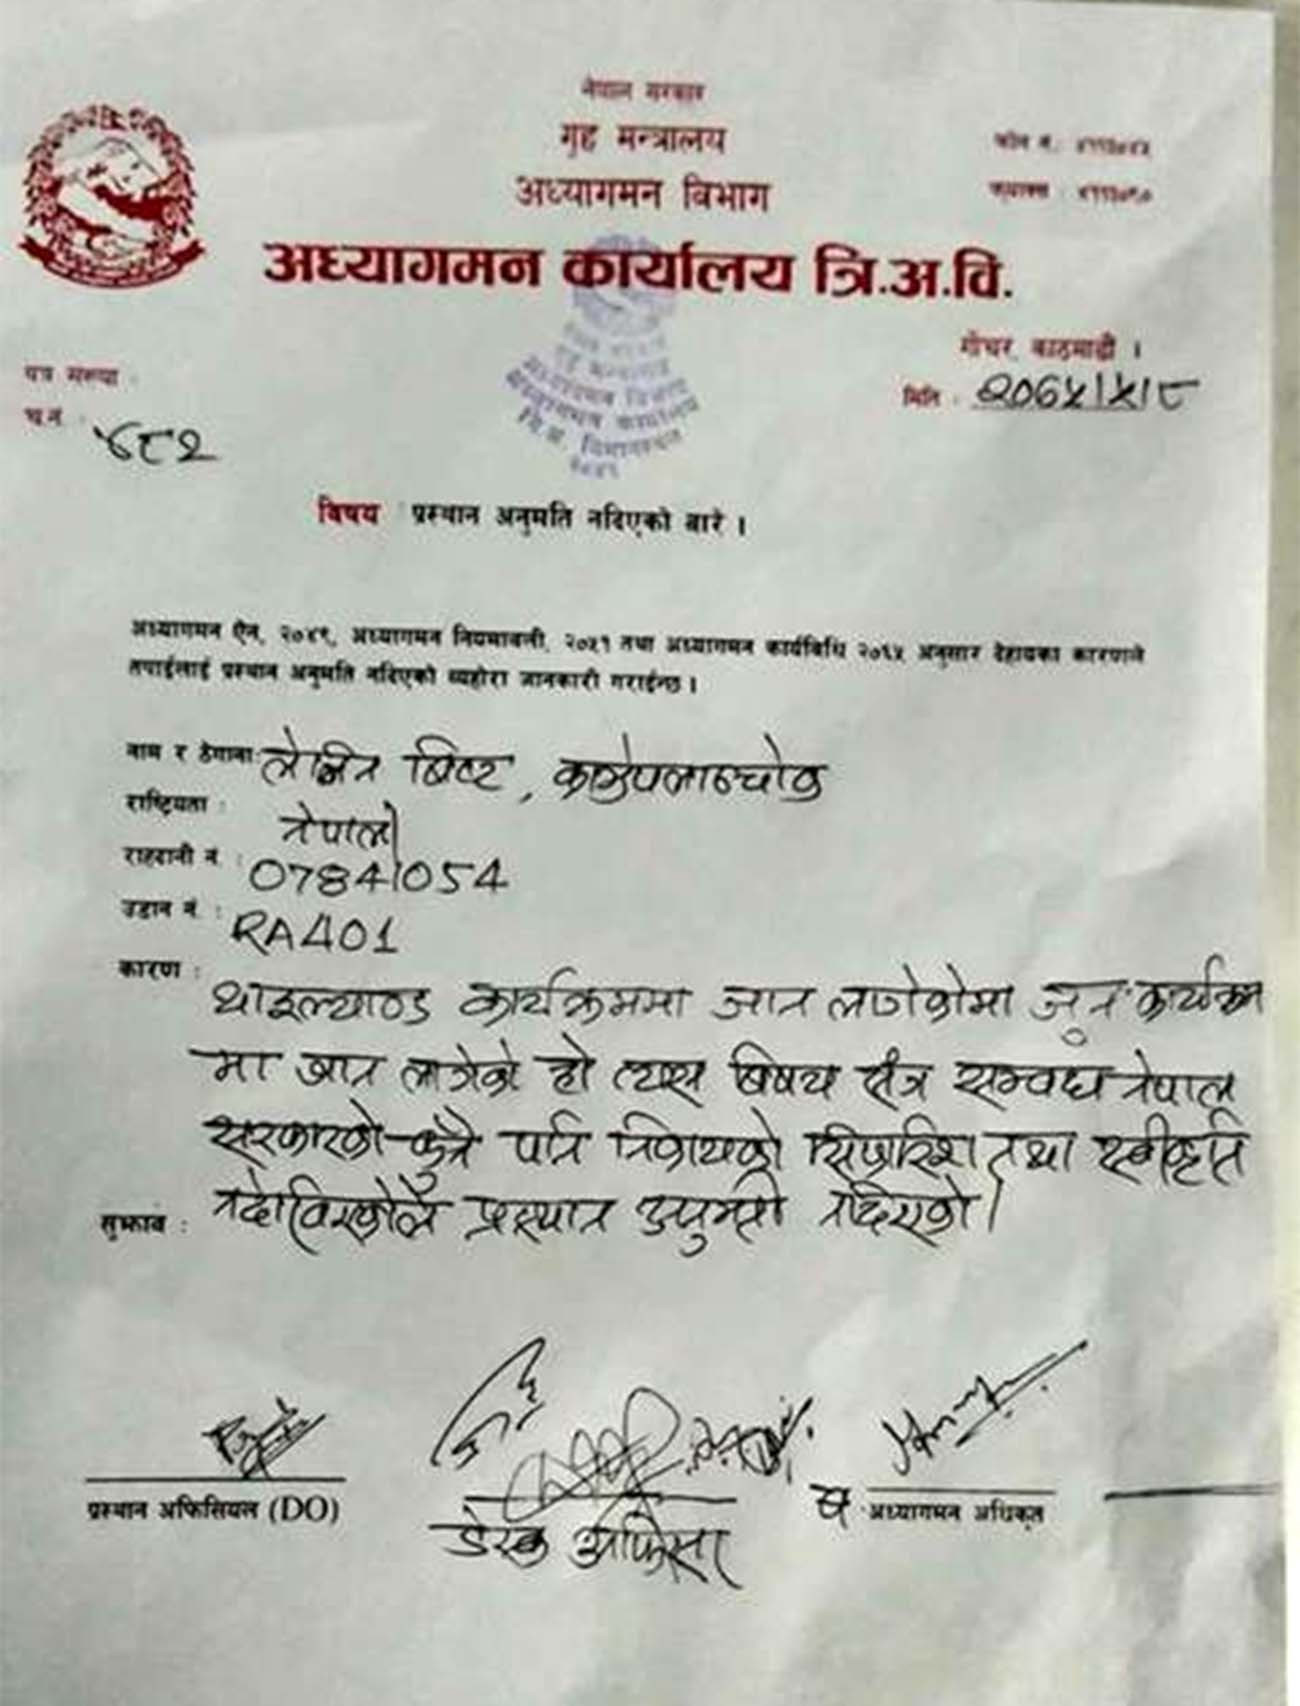 नेपाल सरकार
गृह मन्त्रालय
अध्यागमन विभाग
अध्यागमन कार्यालय त्रि.अ.वि.
फोन नं.:
फ्याक्स :
गौचर, काठमाडौं ।
पत्र संख्या :
मिति : २०७५।५।८
च.नं. ४८२
गृह मन्त्रालय
अध्यागमन विभाग
अध्यागमन कार्यालय
त्रि.अ. विमानस्थल
विषय प्रस्थान अनुमति नदिएको बारे ।
अध्यागमन ऐन, २०४९, अध्यागमन नियमावली, २०५१ तथा अध्यागमन कार्यविधि २०६५ अनुसार देहायका कारणले
तपाईलाई प्रस्थान अनुमति नदिएको व्यहोरा जानकारी गराईन्छ ।
नाम र ठेगाना: लेनिन बिष्ट, काभ्रेपलाञ्चोक
राष्ट्रियता : नेपाली
राहदानी नं. : 07841054
उडान नं. : RA401
कारण : थाइल्याण्ड कार्यक्रममा जान लागेकोमा जुन कार्यक्रम
मा जान लागेको हो त्यस बिषय संग सम्बन्ध नेपाल
सरकारको कुनै पनि निकायको सिफारिश तथा स्वीकृति
नदेखिएकोले प्रस्थान अनुमती नदिएको।
सुझाव :
प्रस्थान अफिसियल (DO)
डेस्क अफिसर
अध्यागमन अधिकृत